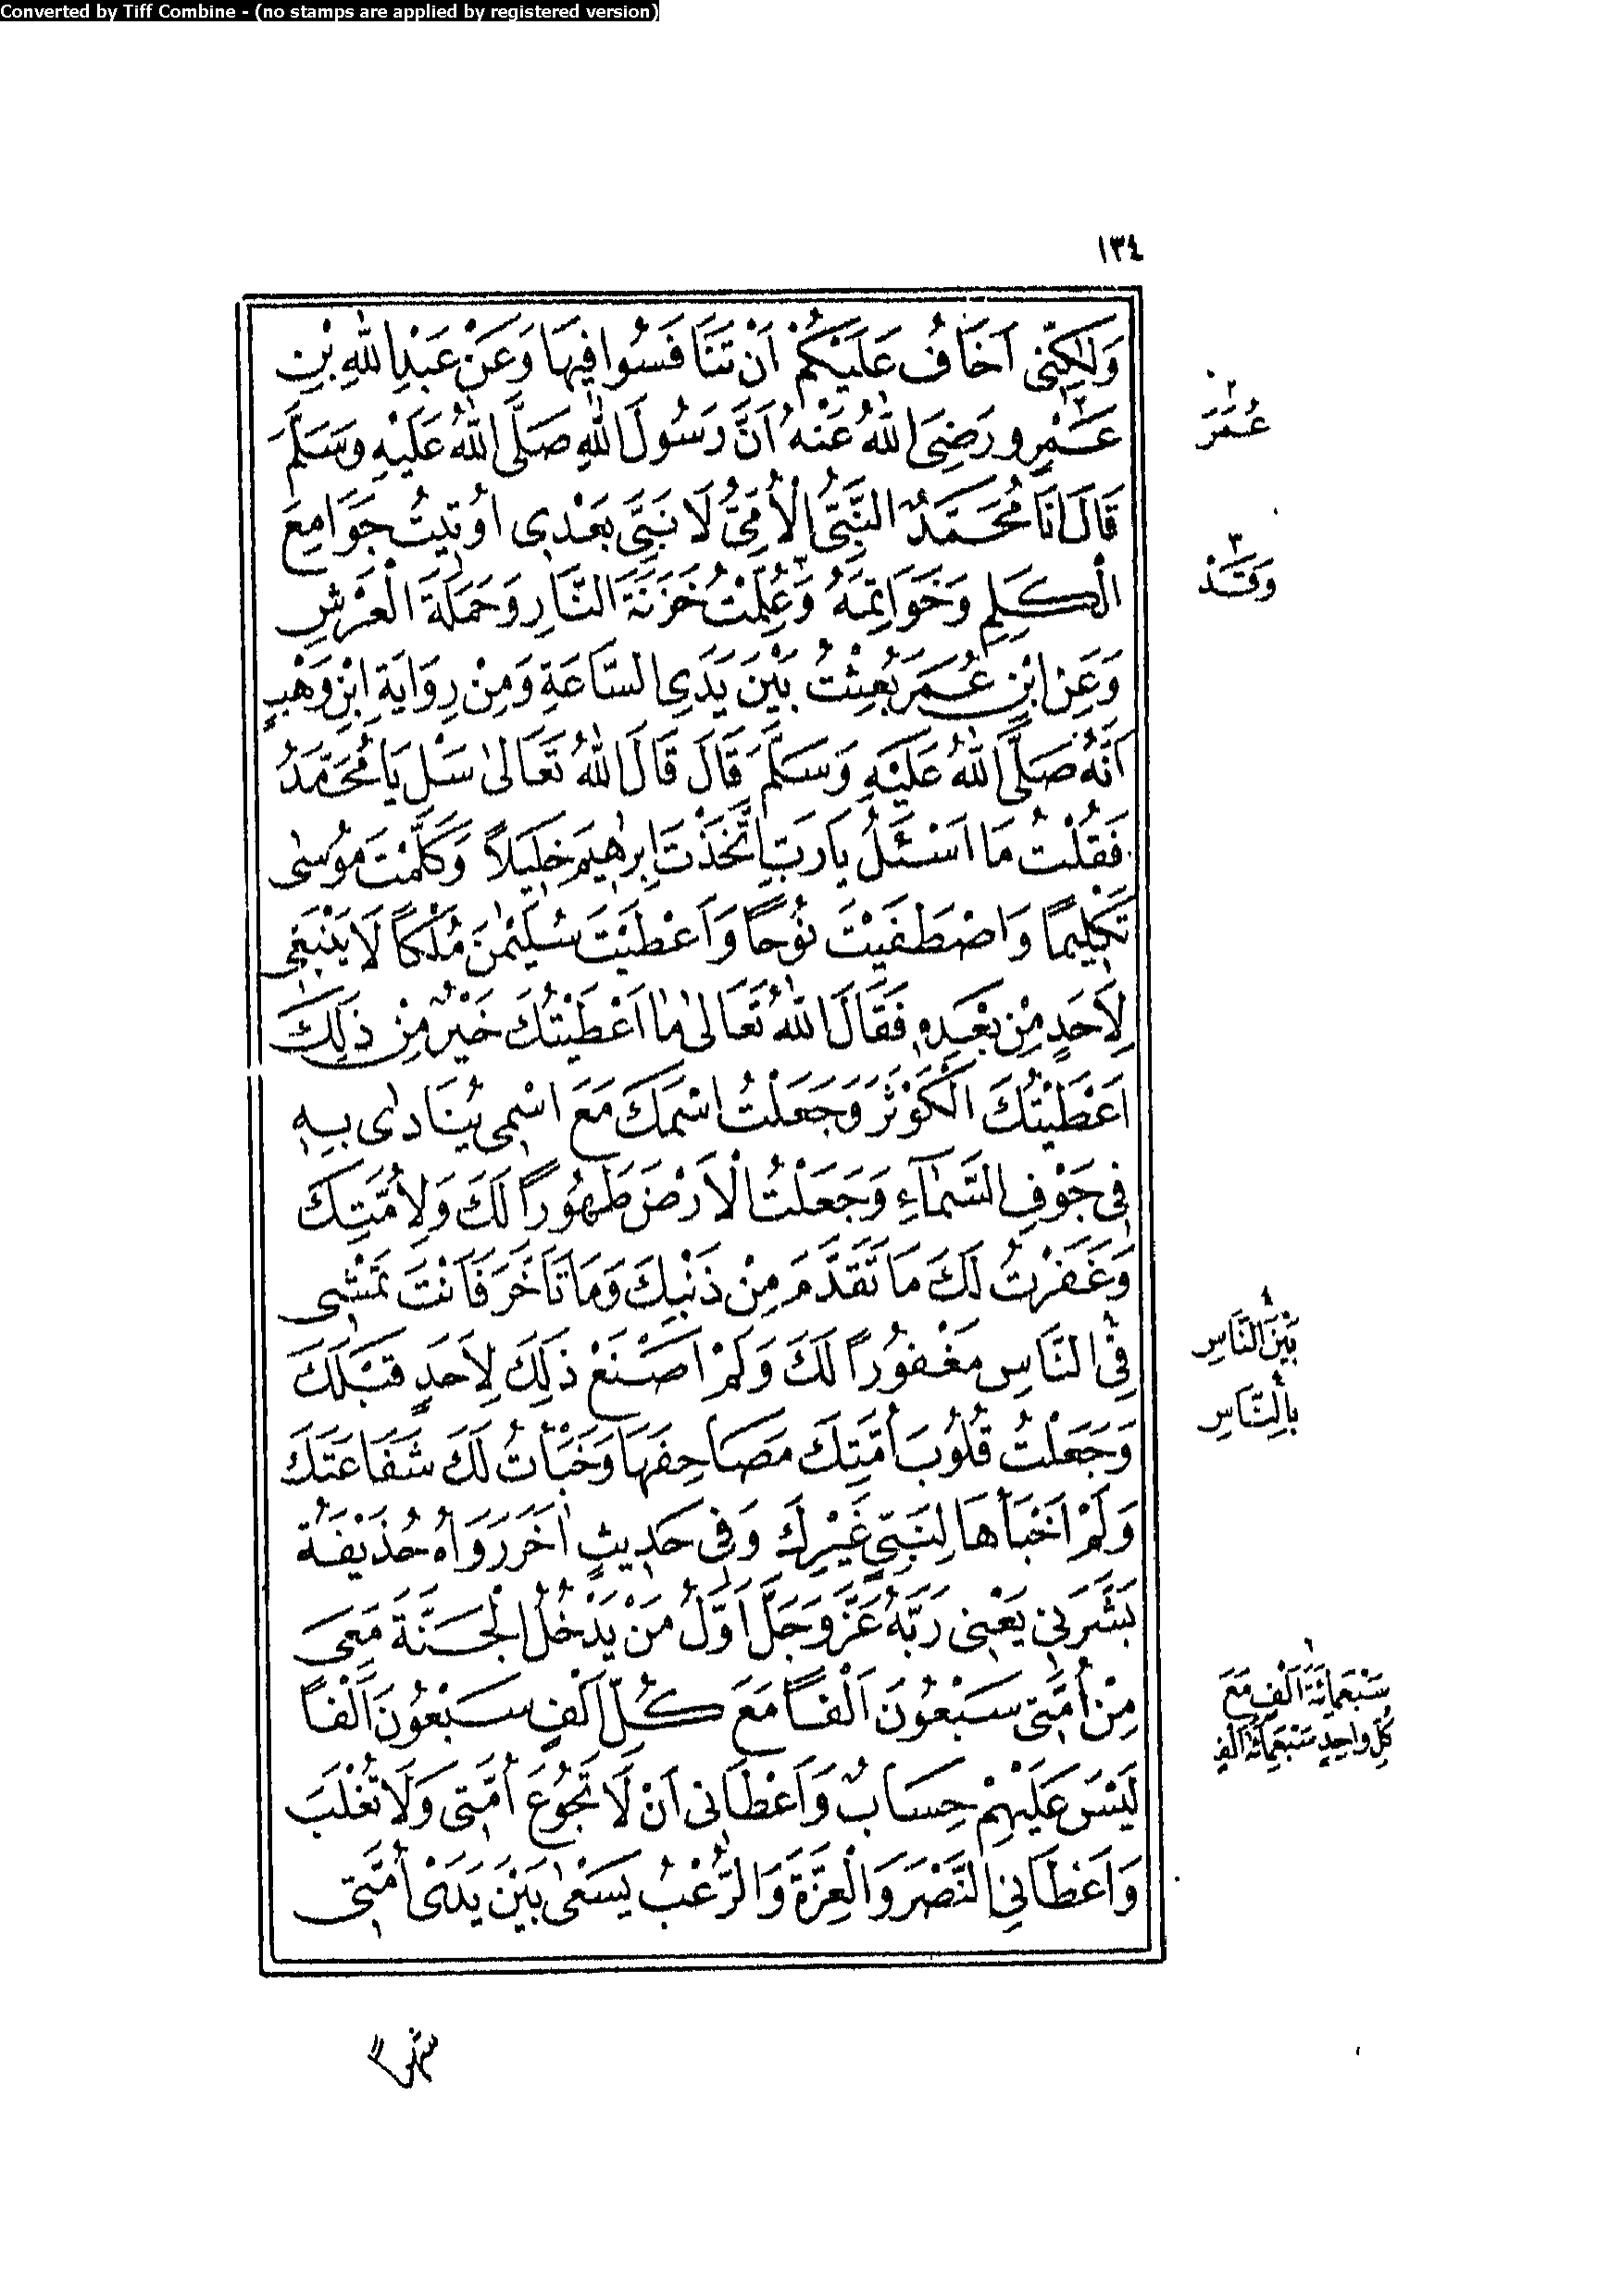 Converted by Tiff Combine - (no stamps are applied by registered version)
١٣٤
وَلٰكِنّى اَخَافُ عَلَيْكُمْ اَنْ تَنَافَسُوا فِيهَا وَعَنْ عَبْدِ اللّٰهِ بْنِ
عَمْرٍو رَضِىَ اللّٰهُ عَنْهُ اَنَّ رَسُولَ اللّٰهِ صَلَّى اللّٰهُ عَلَيْهِ وَسَلَّمَ
قَالَ اَنَا مُحَمَّدٌ النَّبِىُّ الْاُمِّىُّ لَا نَبِىَّ بَعْدِى اُوتِيتُ جَوَامِعَ
الْكَلِمِ وَخَوَاتِمَهُ وَعُلِّمْتُ خَزَنَةَ النَّارِ وَحَمَلَةَ الْعَرْشِ
وَعَنِ ابْنِ عُمَرَ بُعِثْتُ بَيْنَ يَدَىِ السَّاعَةِ وَمِنْ رِوَايَةِ ابْنِ وَهْبٍ
اَنَّهُ صَلَّى اللّٰهُ عَلَيْهِ وَسَلَّمَ قَالَ قَالَ اللّٰهُ تَعَالىٰ سَلْ يَا مُحَمَّدُ
فَقُلْتُ مَا اَسْئَلُ يَا رَبِّ اتَّخَذْتَ اِبْرٰهِيمَ خَلِيلاً وَكَلَّمْتَ مُوسٰى
تَكْلِيمًا وَاصْطَفَيْتَ نُوحًا وَاَعْطَيْتَ سُلَيْمٰنَ مُلْكًا لَا يَنْبَغِى
لِاَحَدٍ مِنْ بَعْدِهِ فَقَالَ اللّٰهُ تَعَالىٰ مَا اَعْطَيْتُكَ خَيْرٌ مِنْ ذٰلِكَ
اَعْطَيْتُكَ الْكَوْثَرَ وَجَعَلْتُ اسْمَكَ مَعَ اسْمِى يُنَادٰى بِهِ
فِى جَوْفِ السَّمَآءِ وَجَعَلْتُ الْاَرْضَ طَهُورًا لَكَ وَلِاُمَّتِكَ
وَغَفَرْتُ لَكَ مَا تَقَدَّمَ مِنْ ذَنْبِكَ وَمَا تَاَخَّرَ فَاَنْتَ تَمْشِى
فِى النَّاسِ مَغْفُورًا لَكَ وَلَمْ اَصْنَعْ ذٰلِكَ لِاَحَدٍ قَبْلَكَ
وَجَعَلْتُ قُلُوبَ اُمَّتِكَ مَصَاحِفَهَا وَخَبَأْتُ لَكَ شَفَاعَتَكَ
وَلَمْ اَخْبَأْهَا لِنَبِىٍّ غَيْرِكَ وَفِى حَدِيثٍ اٰخَرَ رَوَاهُ حُذَيْفَةُ
بَشَّرَنِى يَعْنِى رَبَّهُ عَزَّ وَجَلَّ اَوَّلُ مَنْ يَدْخُلُ الْجَنَّةَ مَعِى
مِنْ اُمَّتِى سَبْعُونَ اَلْفًا مَعَ كُلِّ اَلْفٍ سَبْعُونَ اَلْفًا
لَيْسَ عَلَيْهِمْ حِسَابٌ وَاَعْطَانِى اَنْ لَا تَجُوعَ اُمَّتِى وَلَا تُغْلَبَ
وَاَعْطَانِى النَّصْرَ وَالْعِزَّةَ وَالرُّعْبَ يَسْعٰى بَيْنَ يَدَىْ اُمَّتِى
٢
عُمَرَ
٣
وَقَدْ
٤
بَيْنَ النَّاسِ
٤
بِالنَّاسِ
١
سَبْعُمِائَةِ اَلْفٍ مَعَ
كُلِّ وَاحِدٍ سَبْعُمِائَةِ اَلْفٍ